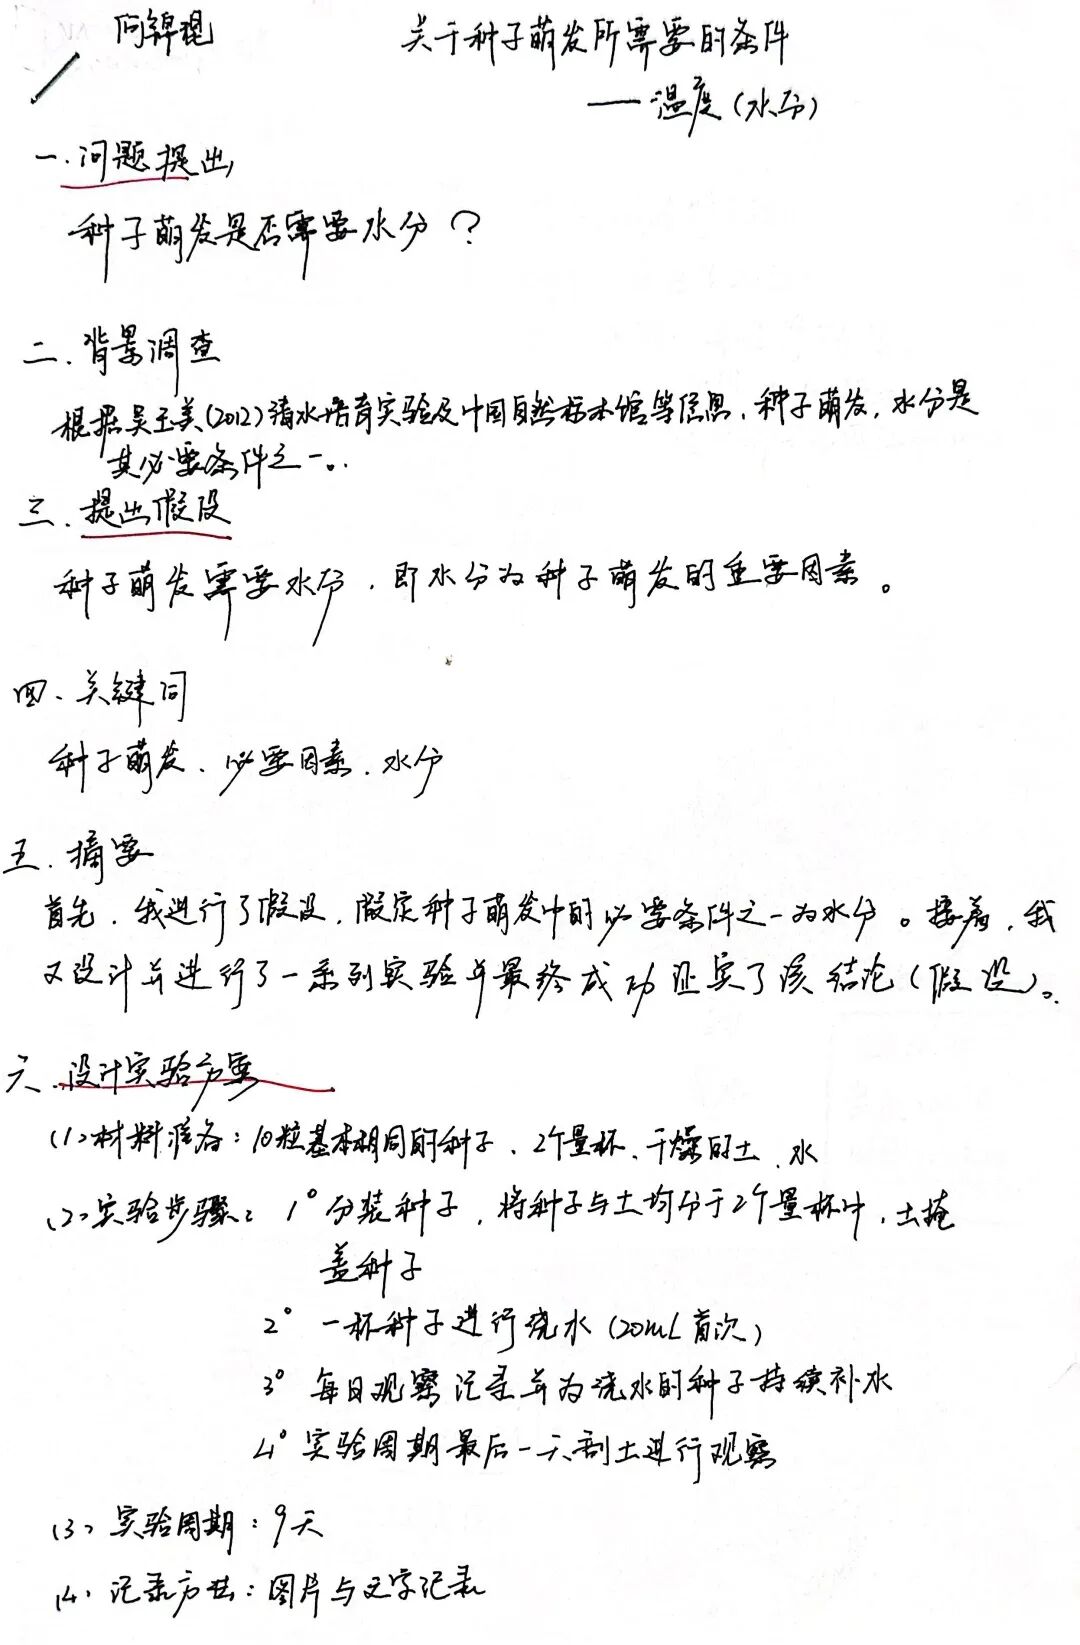 何锦琨
关于种子萌发所需要的条件
——温度(水分)
一.问题提出
种子萌发是否需要水分？
二.背景调查
根据吴玉美(2012)清水培育实验及中国自然标本馆等信息,种子萌发,水分是
其必要条件之一。
三.提出假设
种子萌发需要水分,即水分为种子萌发的重要因素。
四、关键词
种子萌发、必要因素、水分
五.摘要
首先,我进行了假设,假定种子萌发中的必要条件之一为水分。接着,我
又设计并进行了一系列实验并最终成功证实了该结论(假设)。
六.设计实验方案
(1)材料准备:10粒基本相同的种子、2个量杯、干燥的土、水
(2)实验步骤:1°分装种子,将种子与土均分于2个量杯中,土掩
盖种子
2°一杯种子进行浇水(20mL首次)
3°每日观察记录并为浇水的种子持续补水
4°实验周期最后一天刮土进行观察
(3)实验周期:9天
(4)记录方法:图片与文字记录